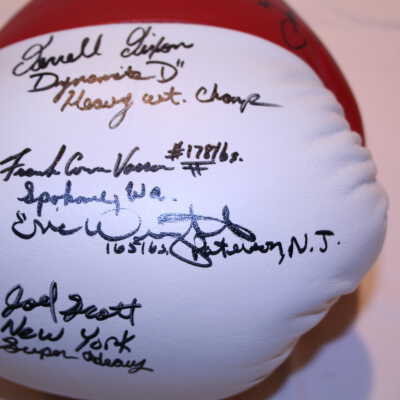 Darrell Dixon
Dynamite D"
Heavy wt. Champ
Frank Vassar #178lbs.
Spokane, Wa.
"Eric
165lbs. Paterson, N.J.
Joel Scott
New York
Super Heavy